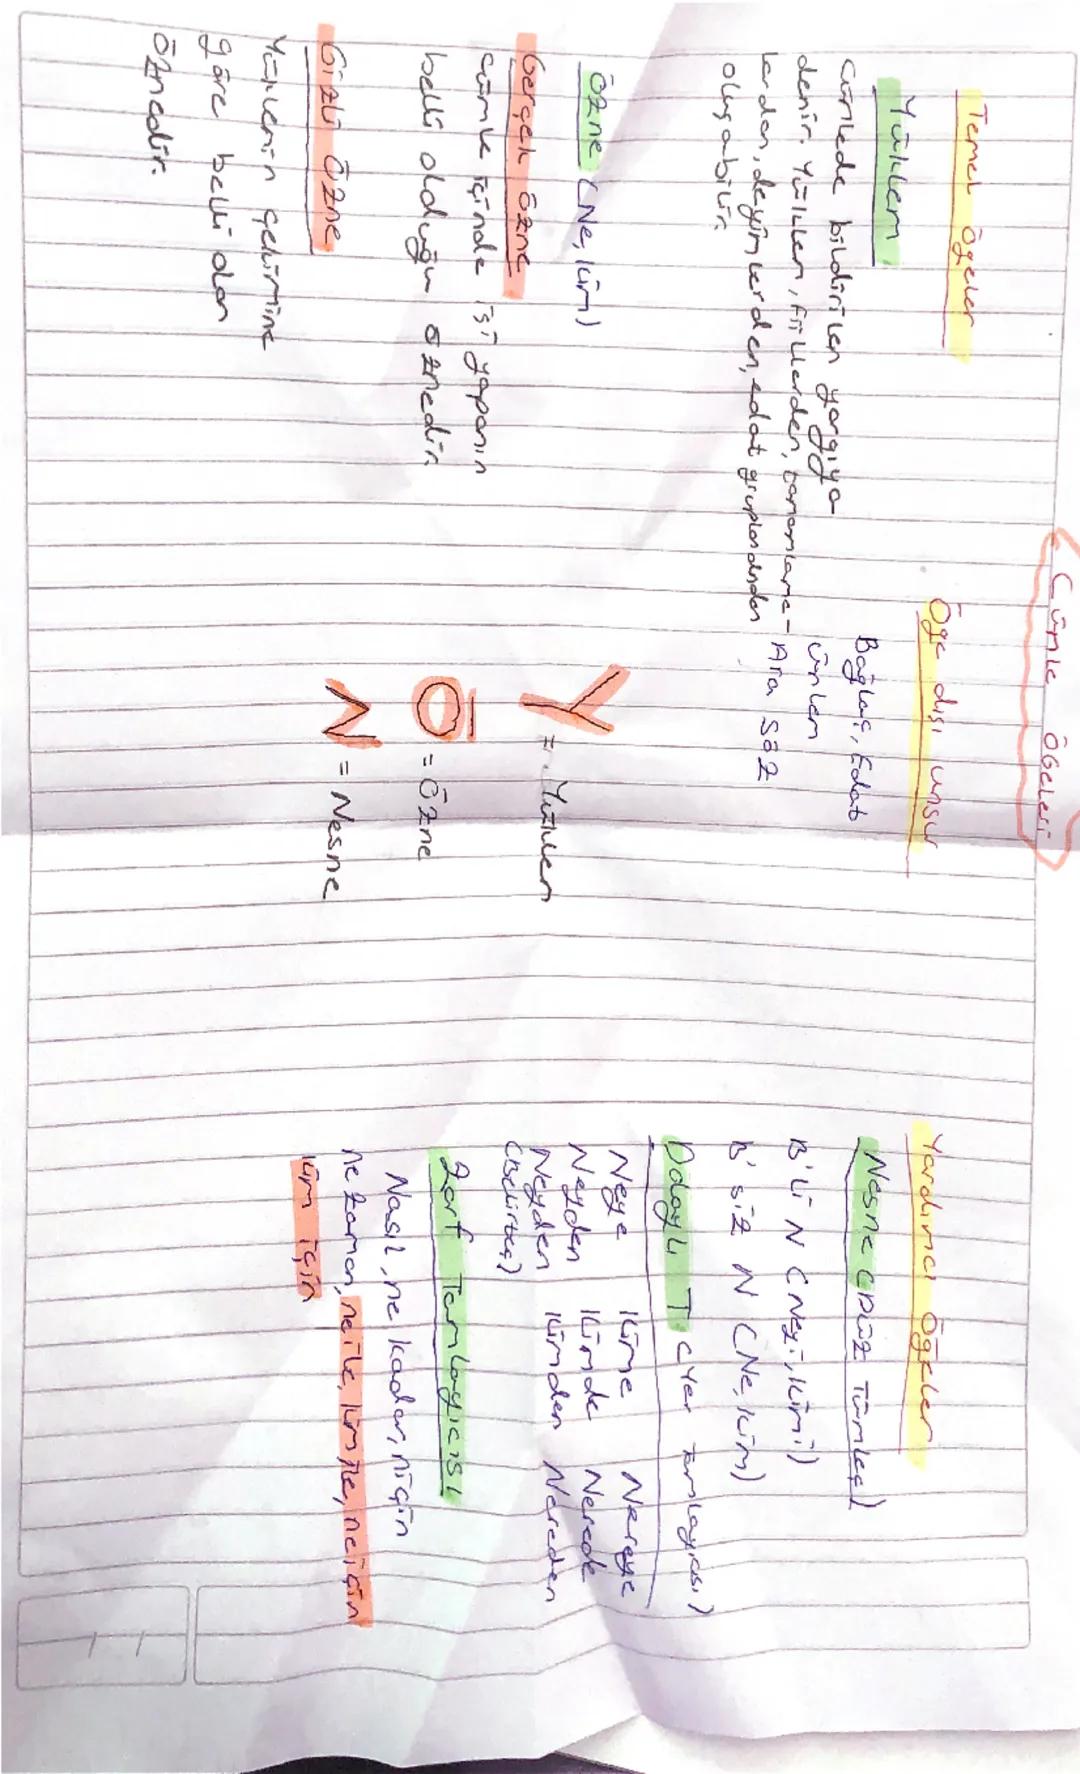 Cümle Ögeleri
Temel Ögeler
Yüklem
Cümlede bildirilen yargıya
denir. Yüklem, fiillerden, tamlama-
lardan, deyimlerden, edat gruplarından
oluşabilir.
Özne (Ne, kim)
Gerçek Özne
Cümle içinde işi yapanın
belli olduğu öznedir.
Gizli Özne
Yüklemin çekimine
göre belli olan
öznedir.
Öge dışı unsur
Bağlaç, Edat
Ünlem
Ara Söz
Y = Yüklem
Ö = Özne
N = Nesne
Yardımcı Ögeler
Nesne (Düz Tümleç)
B'li N (Neyi, kimi)
B'siz N (Ne, kim)
Dolaylı T. (Yer tamlayıcısı)
Neye Kime Nereye
Neyden Kimde Nerede
Neyden Kimden Nereden
(Belirteç)
Zarf Tamlayıcısı
Nasıl, ne kadar, niçin
ne zaman, ne ile, kim ile, ne için
kim için